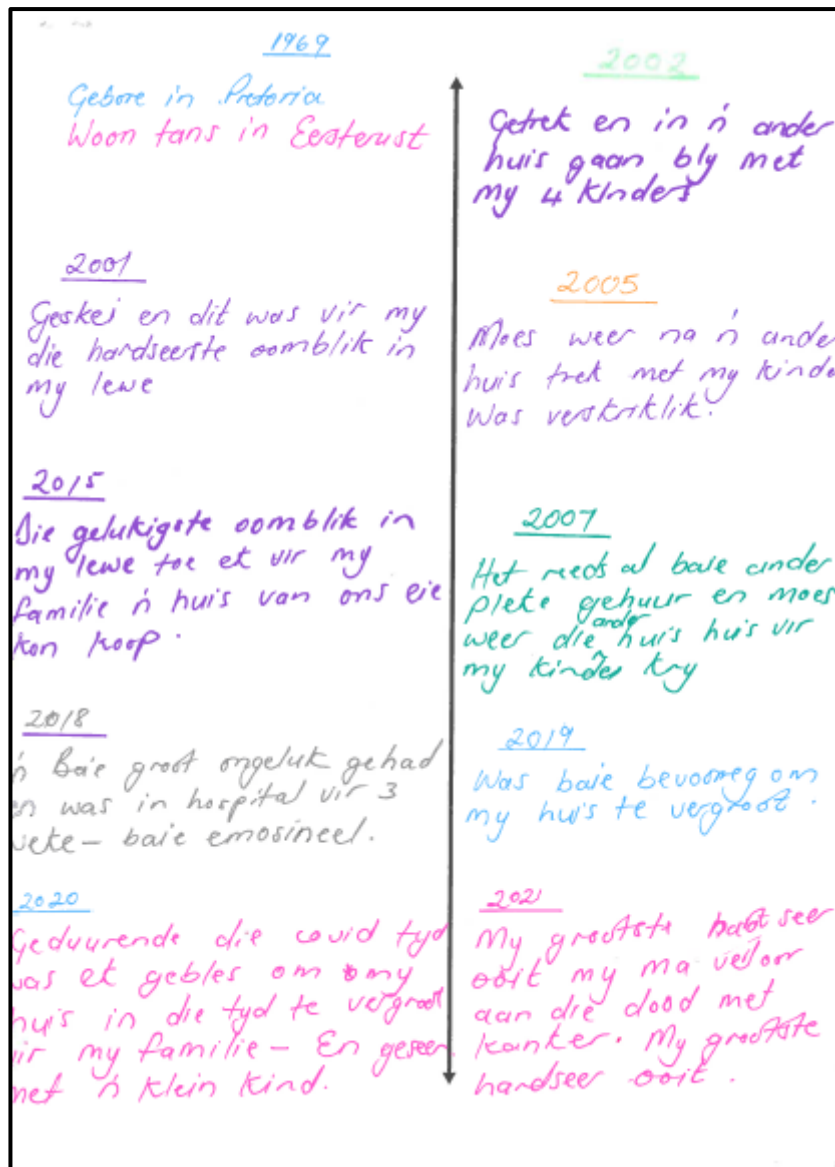 1969
Gebore in Pretoria
Woon tans in Eesterust
2001
Geskei en dit was vir my
die hardseerste oomblik in
my lewe
2015
Die gelukigste oomblik in
my lewe toe ek vir my
familie 'n huis van ons eie
kon koop.
2018
'n Baie groot ongeluk gehad
en was in hospital vir 3
weke - baie emosineel.
2020
Geduurende die covid tyd
was ek gebles om my
huis in die tyd te vergroot
vir my familie - En geseen
met 'n klein kind.
2002
Getrek en in 'n ander
huis gaan bly met
my 4 kinders
2005
Moes weer na 'n ander
huis trek met my kinde
Was verskriklik.
2007
Het reeds al baie ander
pleke gehuur en moes
weer die ander huis huis vir
my kinders kry
2019
Was baie bevooreg om
my huis te vergroot.
2021
My grootste hartseer
ooit my ma verloor
aan die dood met
kanker. My grootste
hardseer ooit.